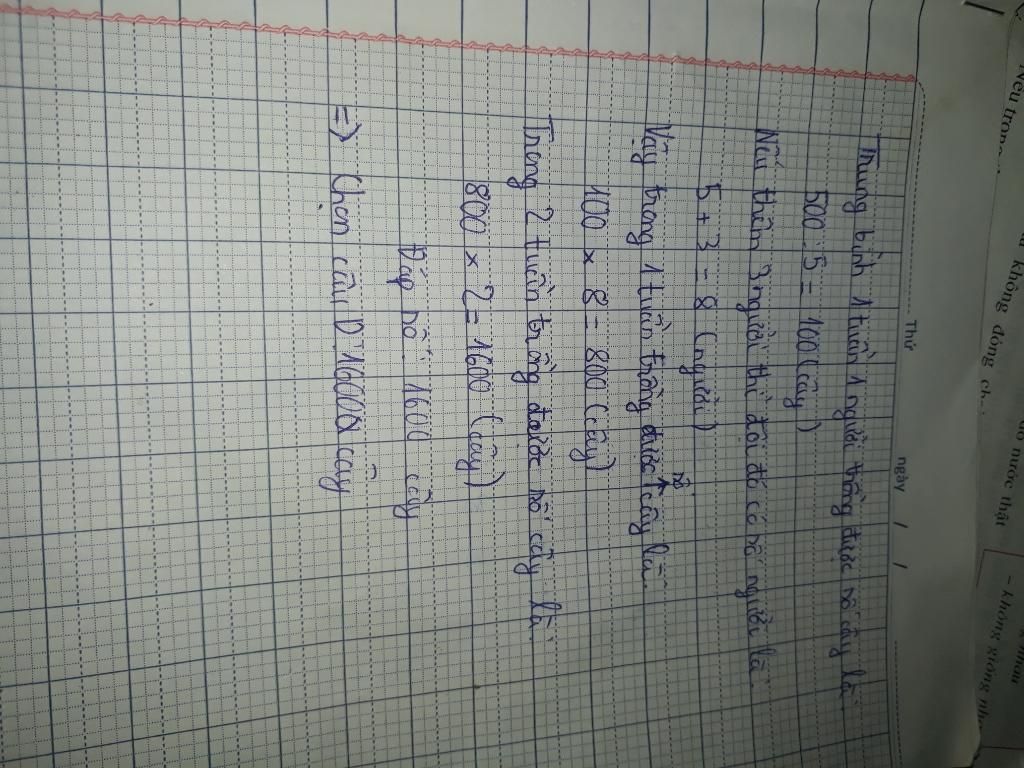 Thứ
ngày / /
Trung bình 1 tuần 1 người trồng được số cây là
500 : 5 = 100 (cây)
Nếu thêm 3 người thì đội đó có số người là
5 + 3 = 8 (người)
Vậy trong 1 tuần trồng được số cây là
100 × 8 = 800 (cây)
Trong 2 tuần trồng được số cây là
800 × 2 = 1600 (cây)
Đáp số: 1600 cây
=> Chọn câu D. 1600 cây
không đồng
nước thải
- không giống nhau